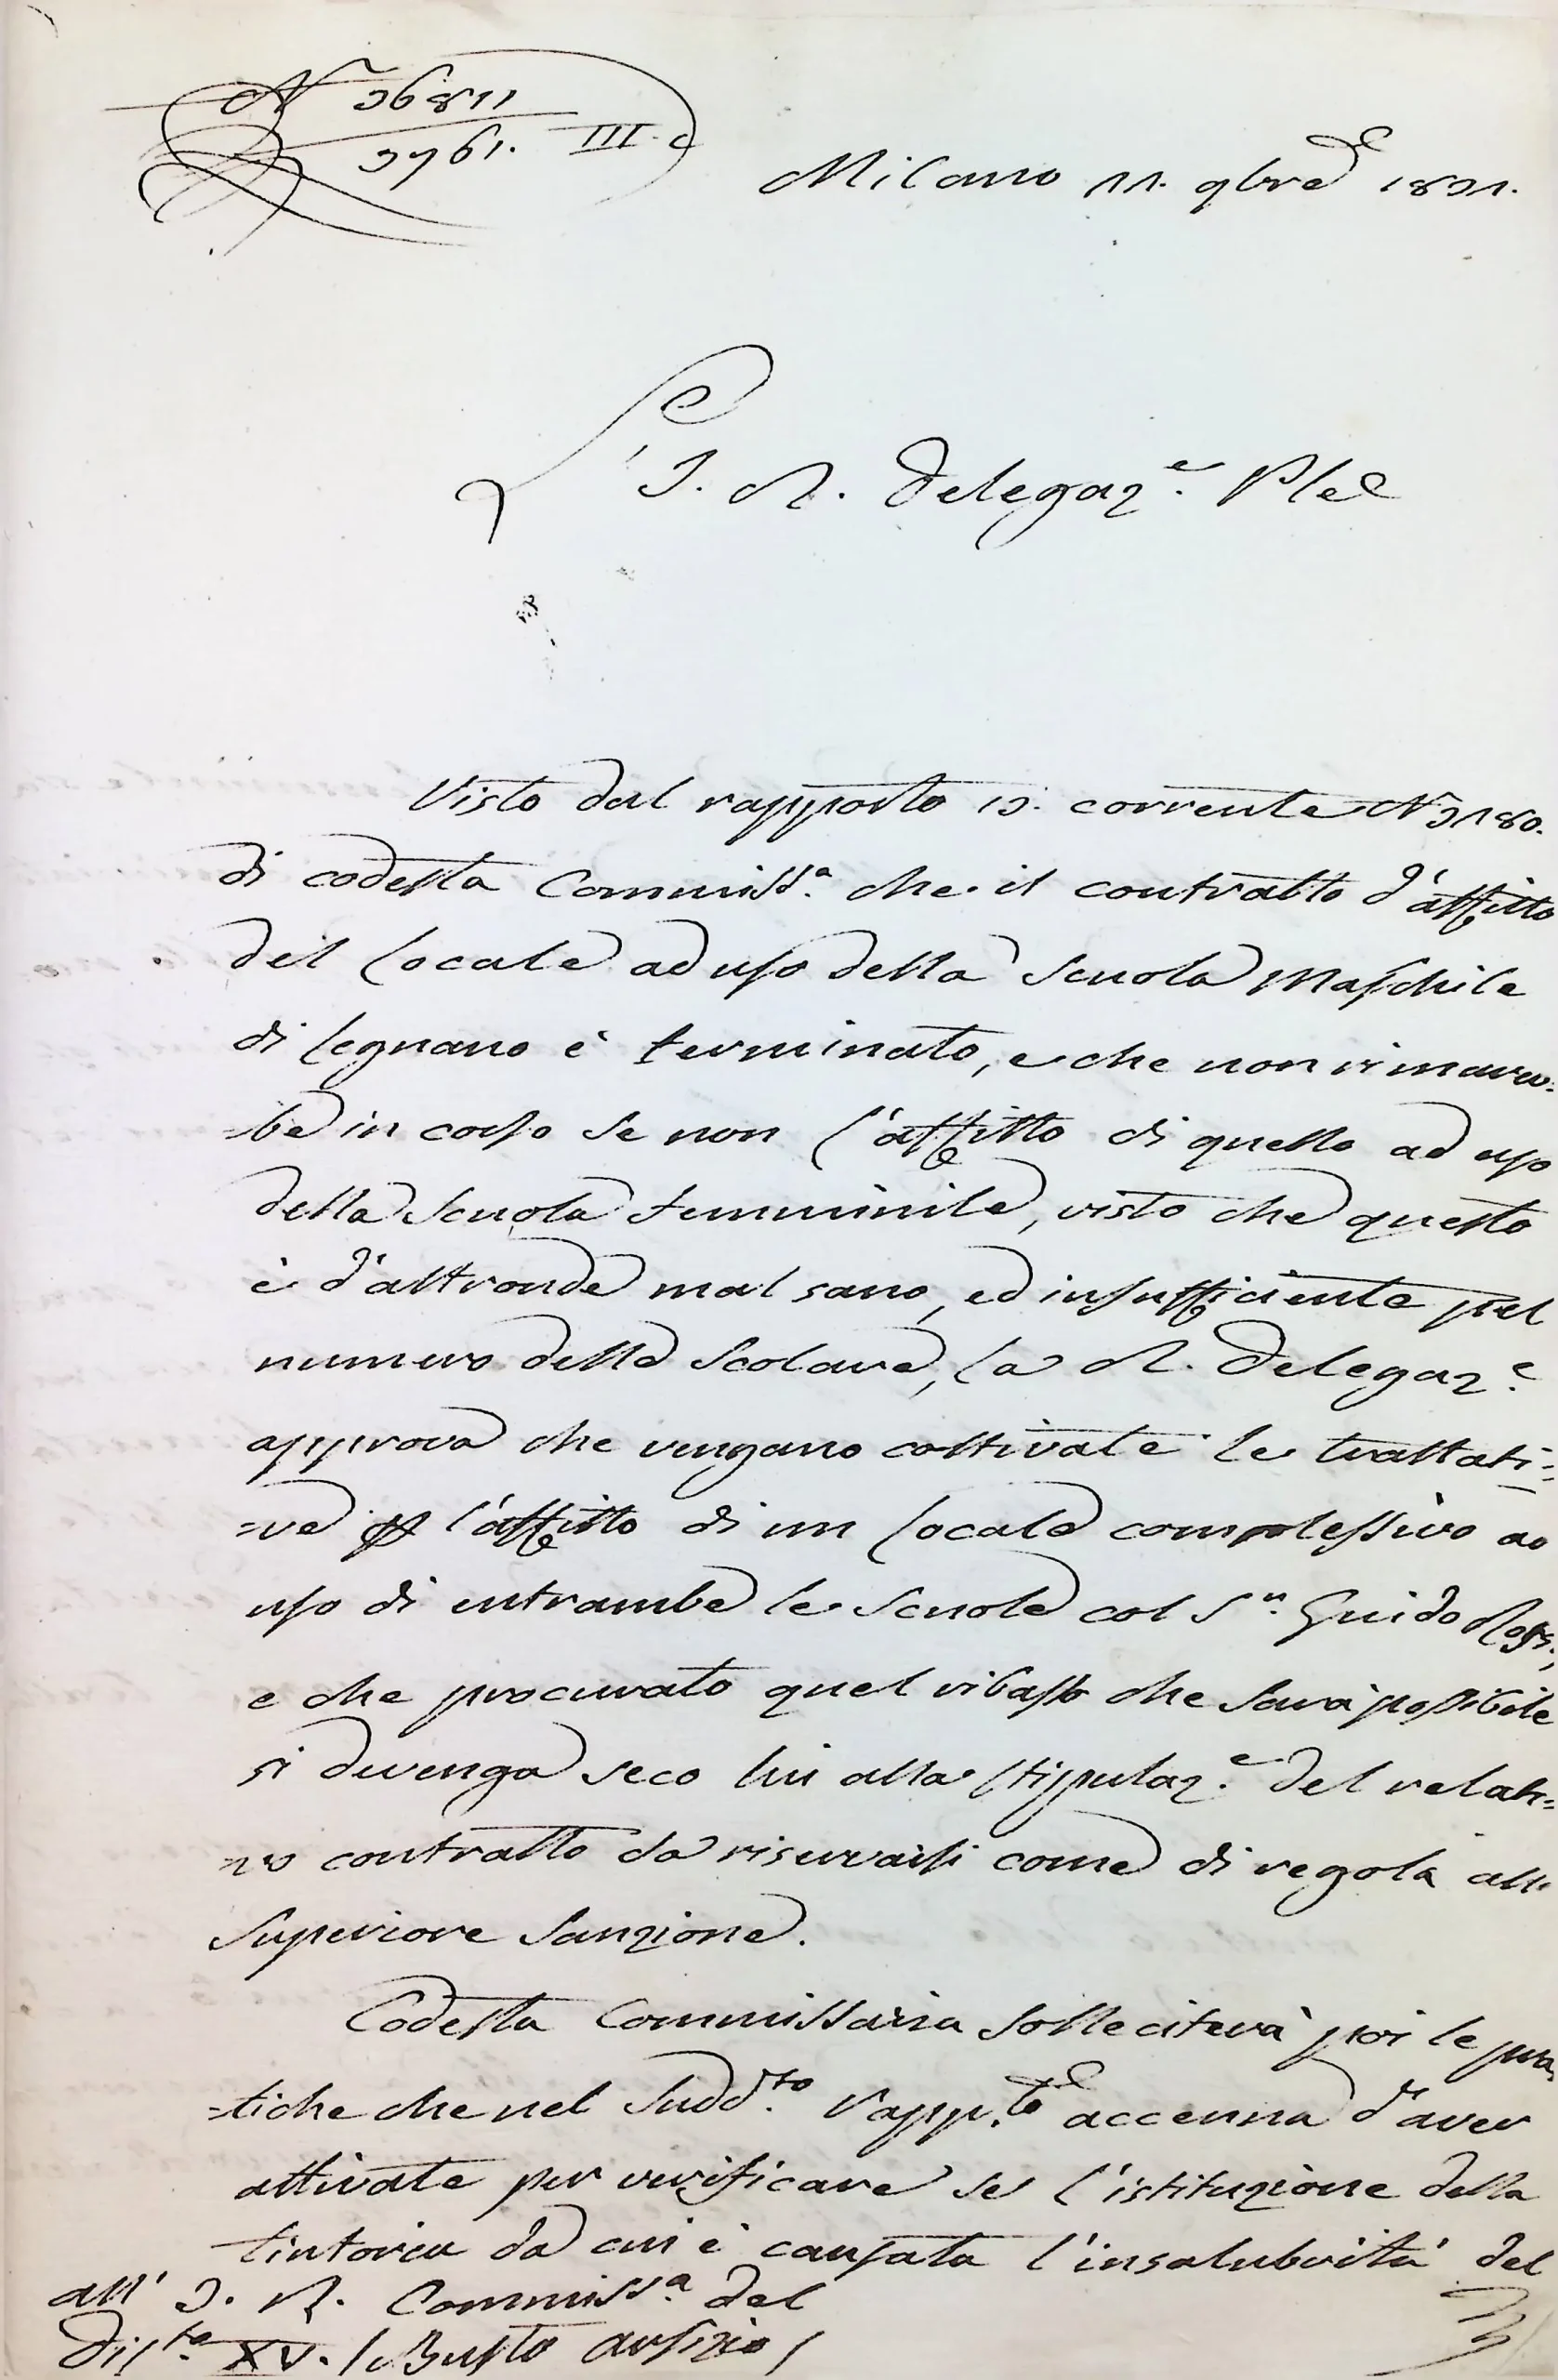 N 36811
3761. III. c
Milano 11. 9bre 1831.
L'I. R. Delegaz.e Ple
Visto dal rapporto 13. corrente N 3180.
di codesta Commiss.a che il contratto d'affitto
del locale ad uso della Scuola Maschile
di Legnano è terminato, e che non rimareb=
=be in corso se non l'affitto di quello ad uso
della Scuola femminile, visto che questo
è d'altronde mal sano, ed insufficiente pel
numero delle Scolare, la R. Delegaz.e
approva che vengano coltivate le trattati=
=ve l'affitto di un locale complessivo ad
uso di entrambe le Scuole col S.r Guido
e che procurato quel ribasso che sarà possibile
si divenga seco lui alla stipulaz.e del relati=
=vo contratto da riservarsi come di regola alla
Superiore Sanzione.
Codesta Commissaria solleciterà poi le pra
=tiche che nel Sudd.to rapp.to accenna d'aver
attivate per verificare se l'istituzione della
tintoria da cui è causata l'insalubrità del
all' I. R. Commiss.a del
Dis.to XV. / Busto Arsizio /